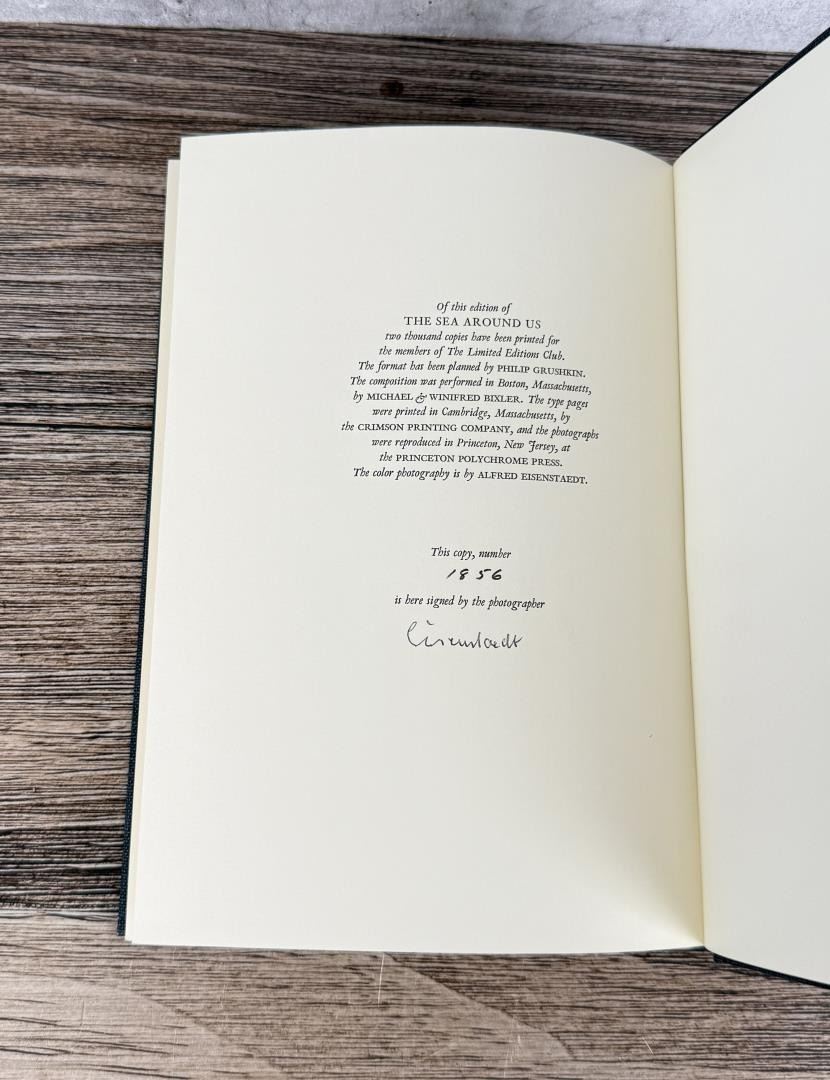 Of this edition of
THE SEA AROUND US
two thousand copies have been printed for
the members of The Limited Editions Club.
The format has been planned by PHILIP GRUSHKIN.
The composition was performed in Boston, Massachusetts,
by MICHAEL & WINIFRED BIXLER. The type pages
were printed in Cambridge, Massachusetts, by
the CRIMSON PRINTING COMPANY, and the photographs
were reproduced in Princeton, New Jersey, at
the PRINCETON POLYCHROME PRESS.
The color photography is by ALFRED EISENSTAEDT.
This copy, number
1856
is here signed by the photographer
Eisenstaedt